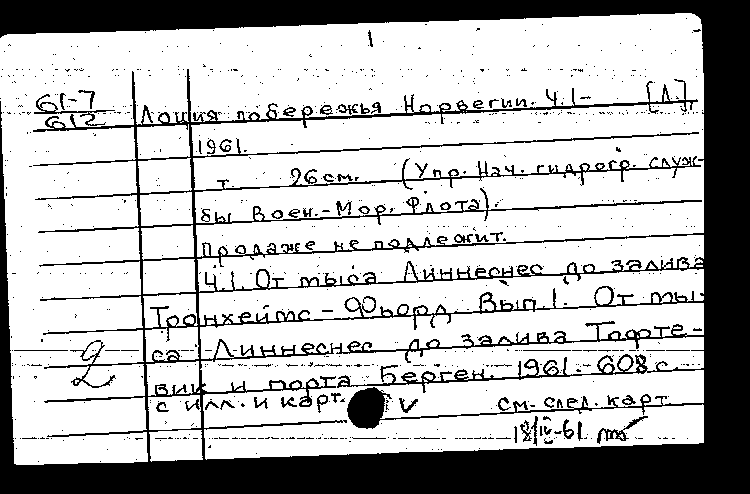 1
61-7
612
Лоция побережья Норвегии. Ч.1- [Л.],
1961.
т. 26 см. (Упр. Нач. гидрогр. служ-
бы Воен.-Мор. Флота).
Продаже не подлежит.
Ч.1. От мыса Линнеснес до залива
Тронхеймс-Фьорд. Вып.1. От мы-
са Линнеснес до залива Тофте-
вик и порта Берген. 1961.-608 с.
с илл. и карт. V см. след. карт.
2
18/IV-61